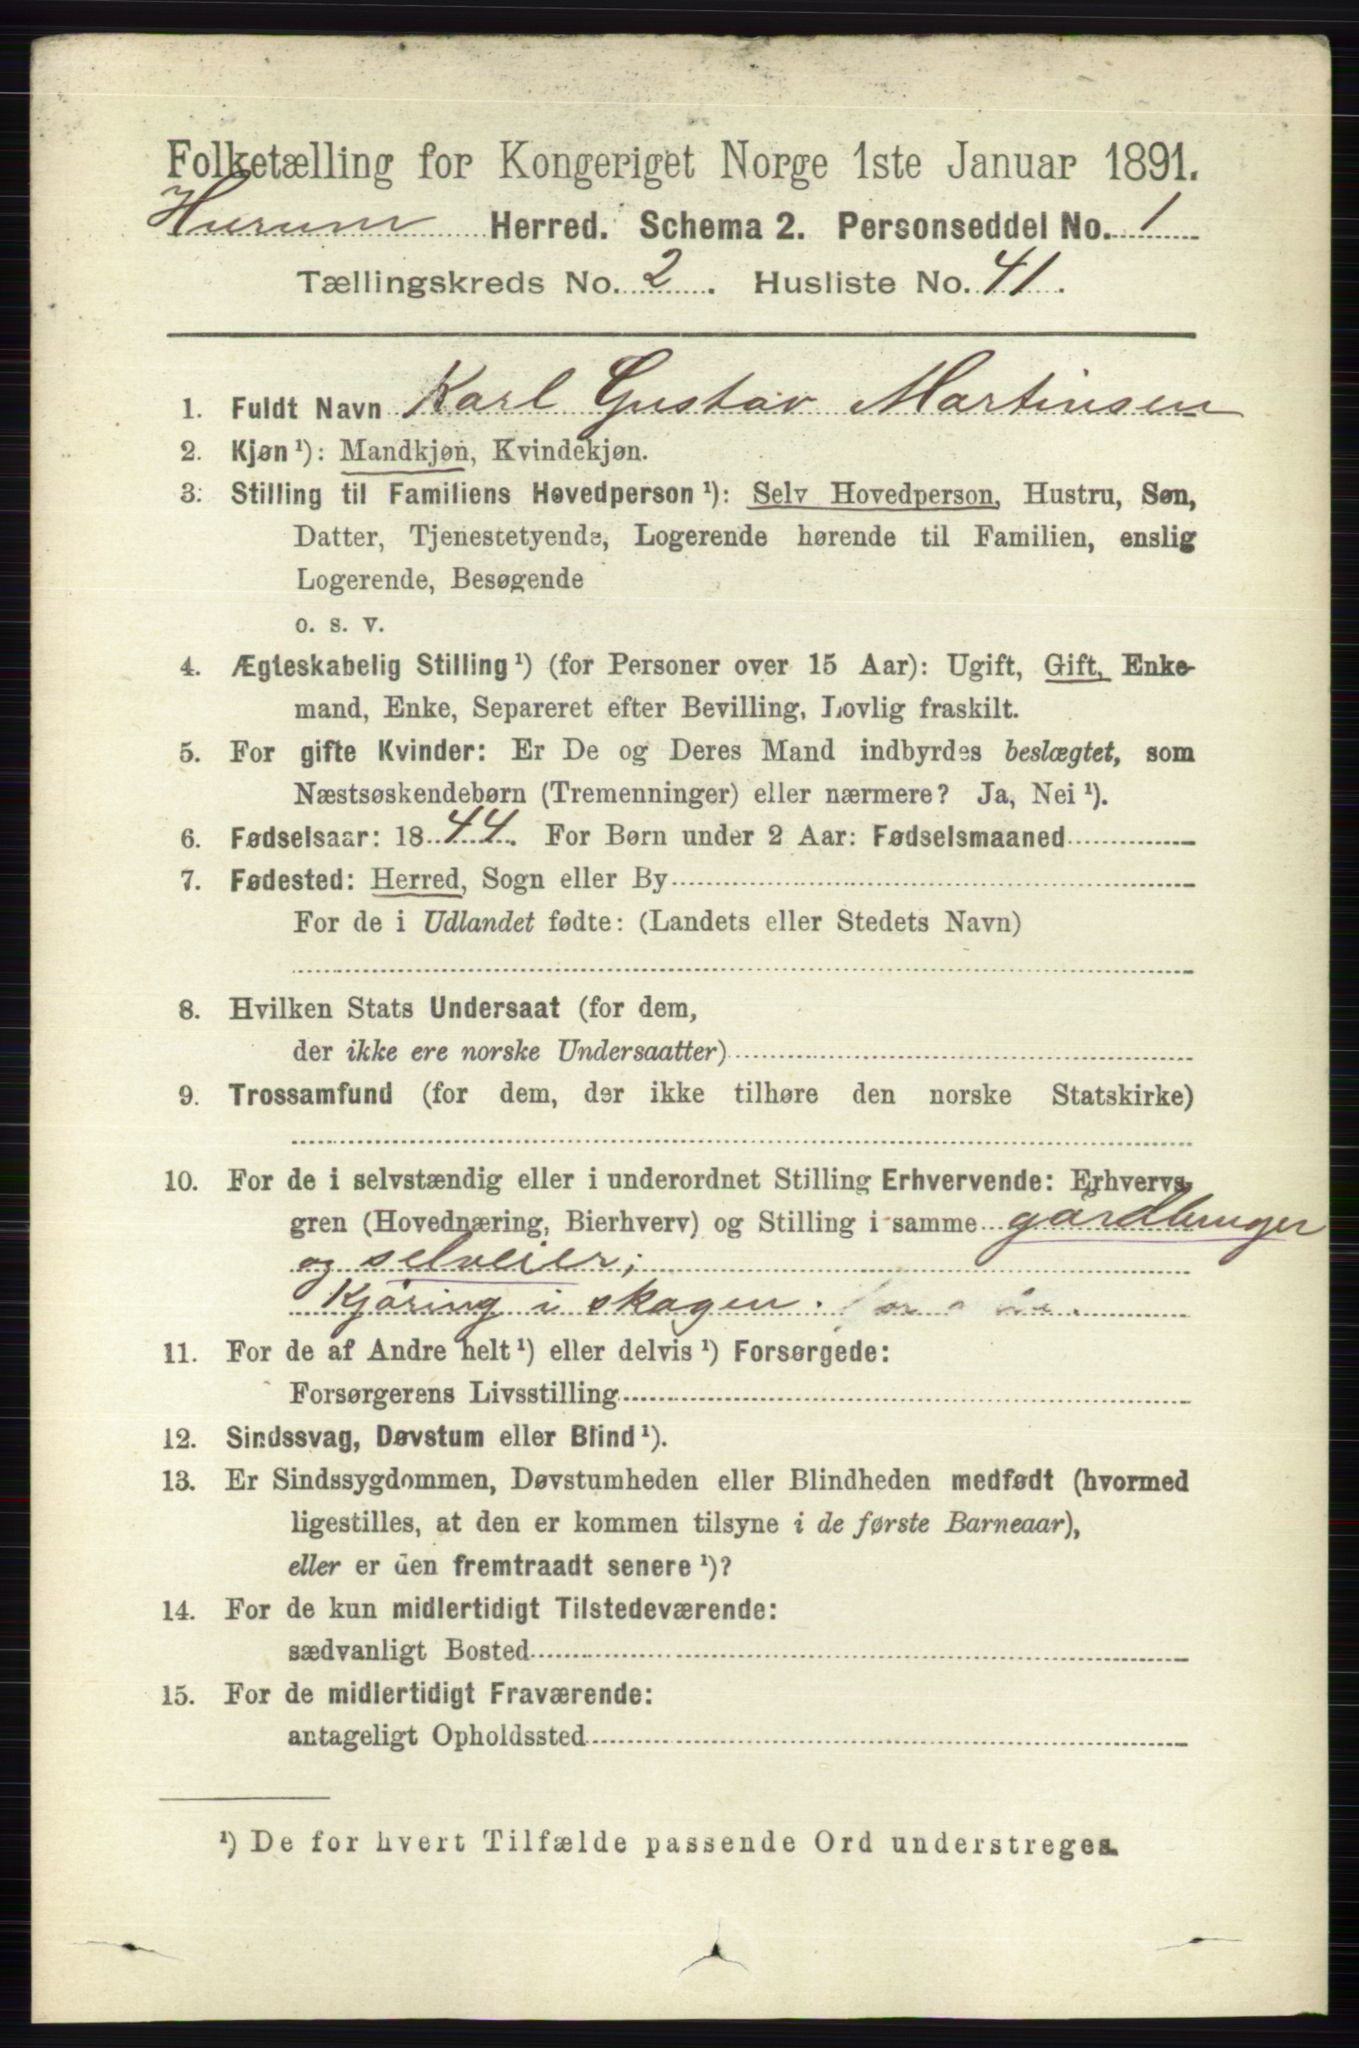 Folketælling for Kongeriget Norge 1ste Januar 1891.
Hurum Herred. Schema 2. Personseddel No. 1
Tællingskreds No. 2. Husliste No. 41.
1. Fuldt Navn Karl Gustav Martinsen
2. Kjøn¹): Mandkjøn, Kvindekjøn.
3. Stilling til Familiens Hovedperson¹): Selv Hovedperson, Hustru, Søn,
Datter, Tjenestetyende, Logerende hørende til Familien, enslig
Logerende, Besøgende
o. s. v.
4. Ægteskabelig Stilling¹) (for Personer over 15 Aar): Ugift, Gift, Enke-
mand, Enke, Separeret efter Bevilling, Lovlig fraskilt.
5. For gifte Kvinder: Er De og Deres Mand indbyrdes beslægtet, som
Næstsøskendebørn (Tremenninger) eller nærmere? Ja, Nei¹).
6. Fødselsaar: 1844. For Børn under 2 Aar: Fødselsmaaned
7. Fødested: Herred, Sogn eller By
For de i Udlandet fødte: (Landets eller Stedets Navn)
8. Hvilken Stats Undersaat (for dem,
der ikke ere norske Undersaatter)
9. Trossamfund (for dem, der ikke tilhøre den norske Statskirke)
10. For de i selvstændig eller i underordnet Stilling Erhvervende: Erhvervs-
gren (Hovednæring, Bierhverv) og Stilling i samme gårdbruger
og selveier;
Kjøring i skogen.
11. For de af Andre helt¹) eller delvis¹) Forsørgede:
Forsørgerens Livsstilling
12. Sindssvag, Døvstum eller Blind¹).
13. Er Sindssygdommen, Døvstumheden eller Blindheden medfødt (hvormed
ligestilles, at den er kommen tilsyne i de første Barneaar),
eller er den fremtraadt senere¹)?
14. For de kun midlertidigt Tilstedeværende:
sædvanligt Bosted
15. For de midlertidigt Fraværende:
antageligt Opholdssted
¹) De for hvert Tilfælde passende Ord understreges.